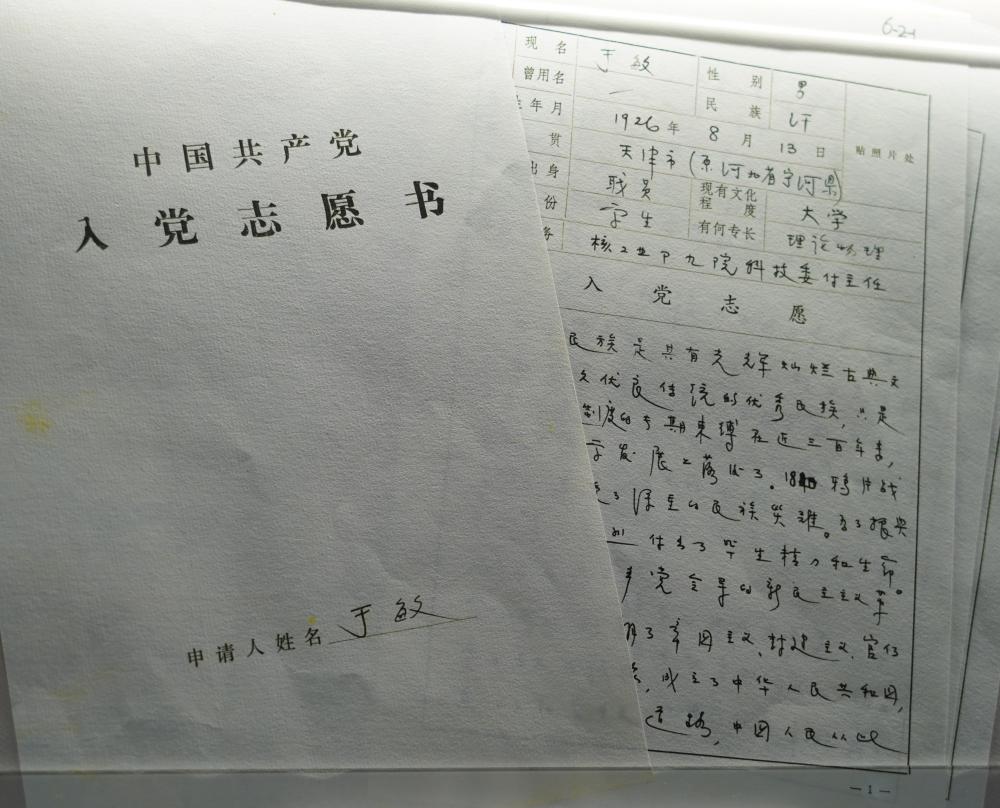 中国共产党
入党志愿书
申请人姓名 于敏
6-2-1
现名 于敏 性别 男
曾用名 一 民族 汉
年月 1926年8月13日 贴照片处
贯 天津市(原河北省宁河县)
出身 职员 现有文化程度 大学
份 学生 有何专长 理论物理
务 核工业部九院科技委付主任
入党志愿
民族是具有光辉灿烂古典文
久优良传统的优秀民族,只是
制度的专期束缚在近三百年来,
学发展上落后了。1840鸦片战
了深重的民族灾难。为了振兴
付出了毕生精力和生命。
党领导的新民主主义革
了帝国主义、封建主义、官仃
,成立了中华人民共和国,
道路,中国人民从此
—1—